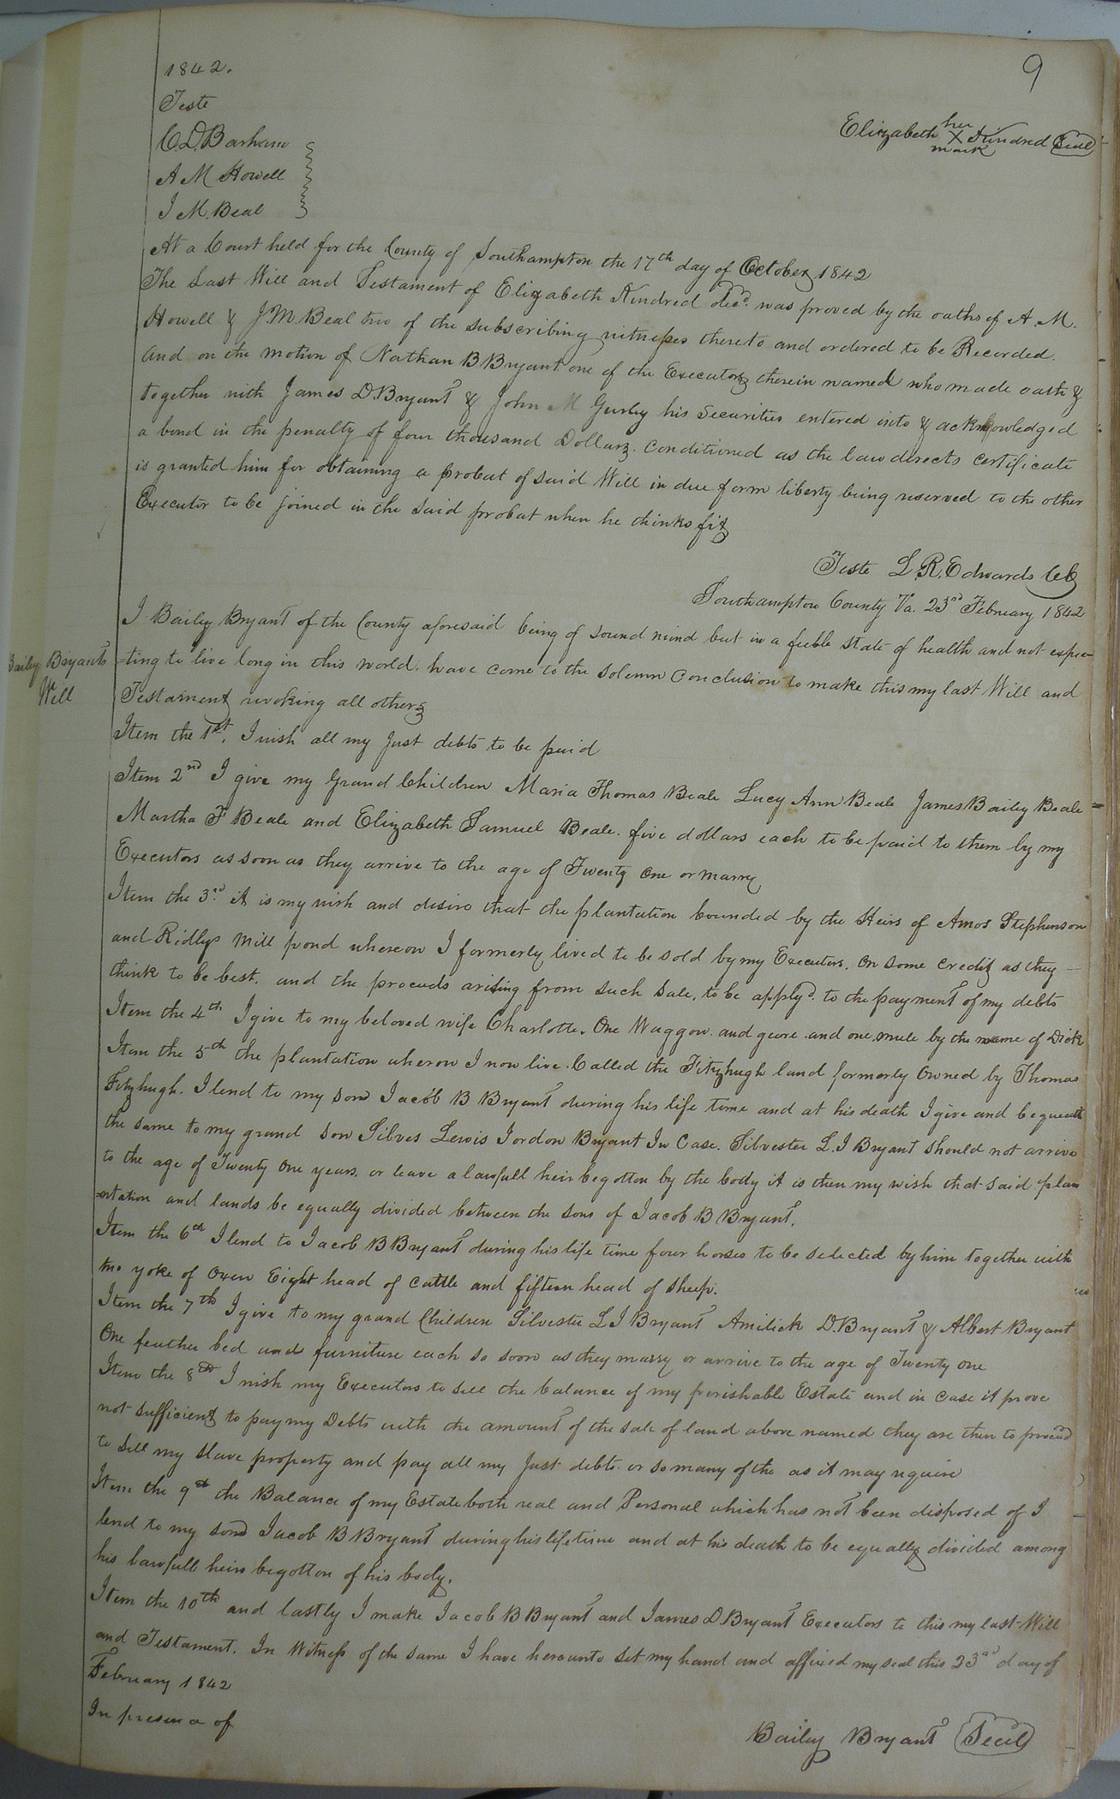 9
1842.
Teste
C D Barham
A M Howell
J M. Beal
Elizabeth her X mark Kindred Seal
At a Court held for the County of Southampton the 17th day of October 1842
The Last Will and Testament of Elizabeth Kindred decd. was proved by the oaths of A. M.
Howell & J. M. Beal two of the subscribing witnesses thereto and ordered to be Recorded.
And on the motion of Nathan B Bryant one of the Executors therein named who made oath &
together with James D. Bryant & John M Gurley his Securities entered into & acknowledged
a bond in the penalty of four thousand Dollars. conditioned as the law directs certificate
is granted him for obtaining a probat of said Will in due form liberty being reserved to the other
Executor to be joined in the said probat when he thinks fit
Teste L. R. Edwards CC
Southampton County Va. 23rd February 1842
I Bailey Bryant of the County aforesaid being of sound mind but in a feeble state of health and not expec-
Baily Bryants
Will
ting to live long in this world. have come to the solemn Conclusion to make this my last Will and
Testament revoking all others
Item the 1st. I wish all my just debts to be paid
Item 2nd I give my Grand Children Maria Thomas Beale Lucy Ann Beale James Bailey Beale
Martha F Beale and Elizabeth Samuel Beale. five dollars each to be paid to them by my
Executors as soon as they arrive to the age of Twenty one or marry
Item the 3rd it is my wish and desire that the plantation bounded by the Heirs of Amos Stephenson
and Ridlys Mill pond whereon I formerly lived to be sold by my Executors. on some credit as they
think to be best. and the proceeds arising from such sale, to be applyd. to the payment of my debts
Item the 4th I give to my beloved wife Charlotte. One Waggon. and geore. and one mule by the name of Dick
Item the 5th the plantation wheron I now live. Called the Fitzhugh land formerly Owned by Thomas
Fitzhugh. I lend to my son Jacob B Bryant during his life time and at his death I give and bequeath
the same to my grand son Silves Lewis Jordon Bryant In Case. Silvester L. J Bryant should not arrive
to the age of Twenty one years. or leave a lawfull heir begotten by the body it is then my wish that said plan
-tation and lands be equally divided between the sons of Jacob B Bryant.
Item the 6th I lend to Jacob B Bryant during his life time four horses to be selected by him together with
two yoke of Oxen Eight head of cattle and fifteen head of sheep.
Item the 7th I give to my grand Children Silvester L J Bryant D. Bryant & Albert Bryant
One feather bed and furniture each so soon as they marry or arrive to the age of Twenty one
Item the 8th I wish my Executors to sell the balance of my perishable Estate and in case it prove
not sufficient to pay my Debts with the amount of the sale of land above named they are then to proceed
to sell my slave property and pay all my just debts or so many of the as it may require
Item the 9th the Balance of my Estate both real and Personal which has not been disposed of I
lend to my son Jacob B Bryant during his lifetime and at his death to be equally divided among
his lawfull heirs begotton of his body.
Item the 10th and lastly I make Jacob B Bryant and James D Bryant Executors to this my last Will
and Testament. In Witness of the same I have hereunto set my hand and affixed my seal this 23rd day of
February 1842
In presence of
Bailey Bryant Seal